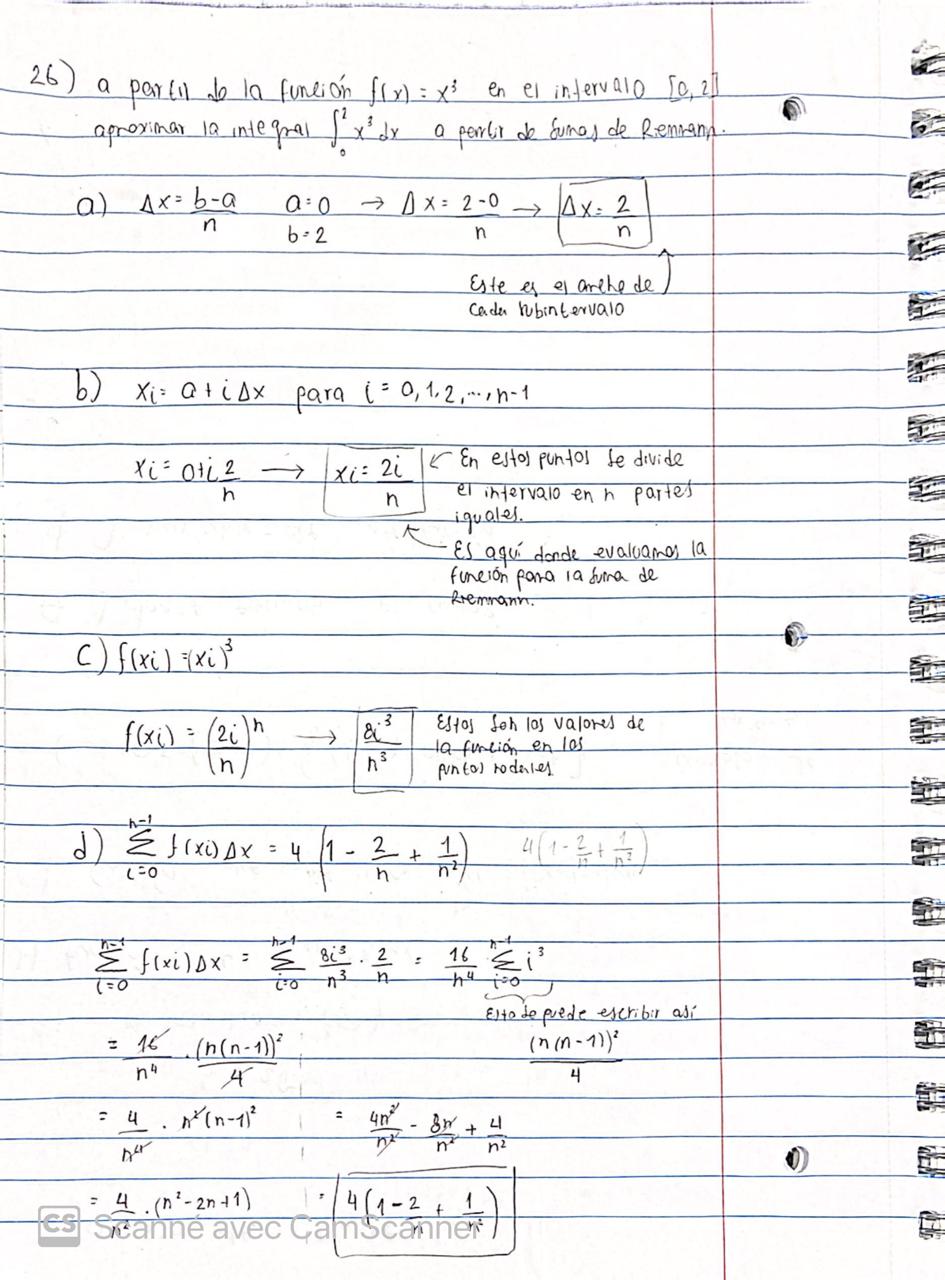 26) a partir de la función f(x) = x³ en el intervalo [0, 2]
aproximar la integral ∫₀² x³ dx a partir de sumas de Riemann.
a) Δx = b-a/n a=0 → Δx = 2-0/n → Δx = 2/n
b=2
Este es el anche de
cada subintervalo
b) xi = a + i Δx para i = 0, 1, 2, ..., n-1
xi = 0+i 2/n → xi = 2i/n ← En estos puntos se divide
el intervalo en n partes
iguales.
Es aquí donde evaluamos la
función para la suma de
Riemann.
c) f(xi) = (xi)³
f(xi) = (2i/n)ⁿ → 8i³/n³ Estos son los valores de
la función en los
puntos nodales
d) Σ_{i=0}^{n-1} f(xi) Δx = 4 (1 - 2/n + 1/n²) 4(1 - 2/n + 1/n²)
Σ_{i=0}^{n-1} f(xi) Δx = Σ_{i=0}^{n-1} 8i³/n³ · 2/n = 16/n⁴ Σ_{i=0}^{n-1} i³
Esto se puede escribir así
= 16/n⁴ · (n(n-1))²/4 (n(n-1))²/4
= 4/n⁴ · n²(n-1)² = 4n²/n² - 8n/n² + 4/n²
= 4/n² · (n²-2n+1) = 4(1 - 2/n + 1/n²)
CS Scanné avec CamScanner